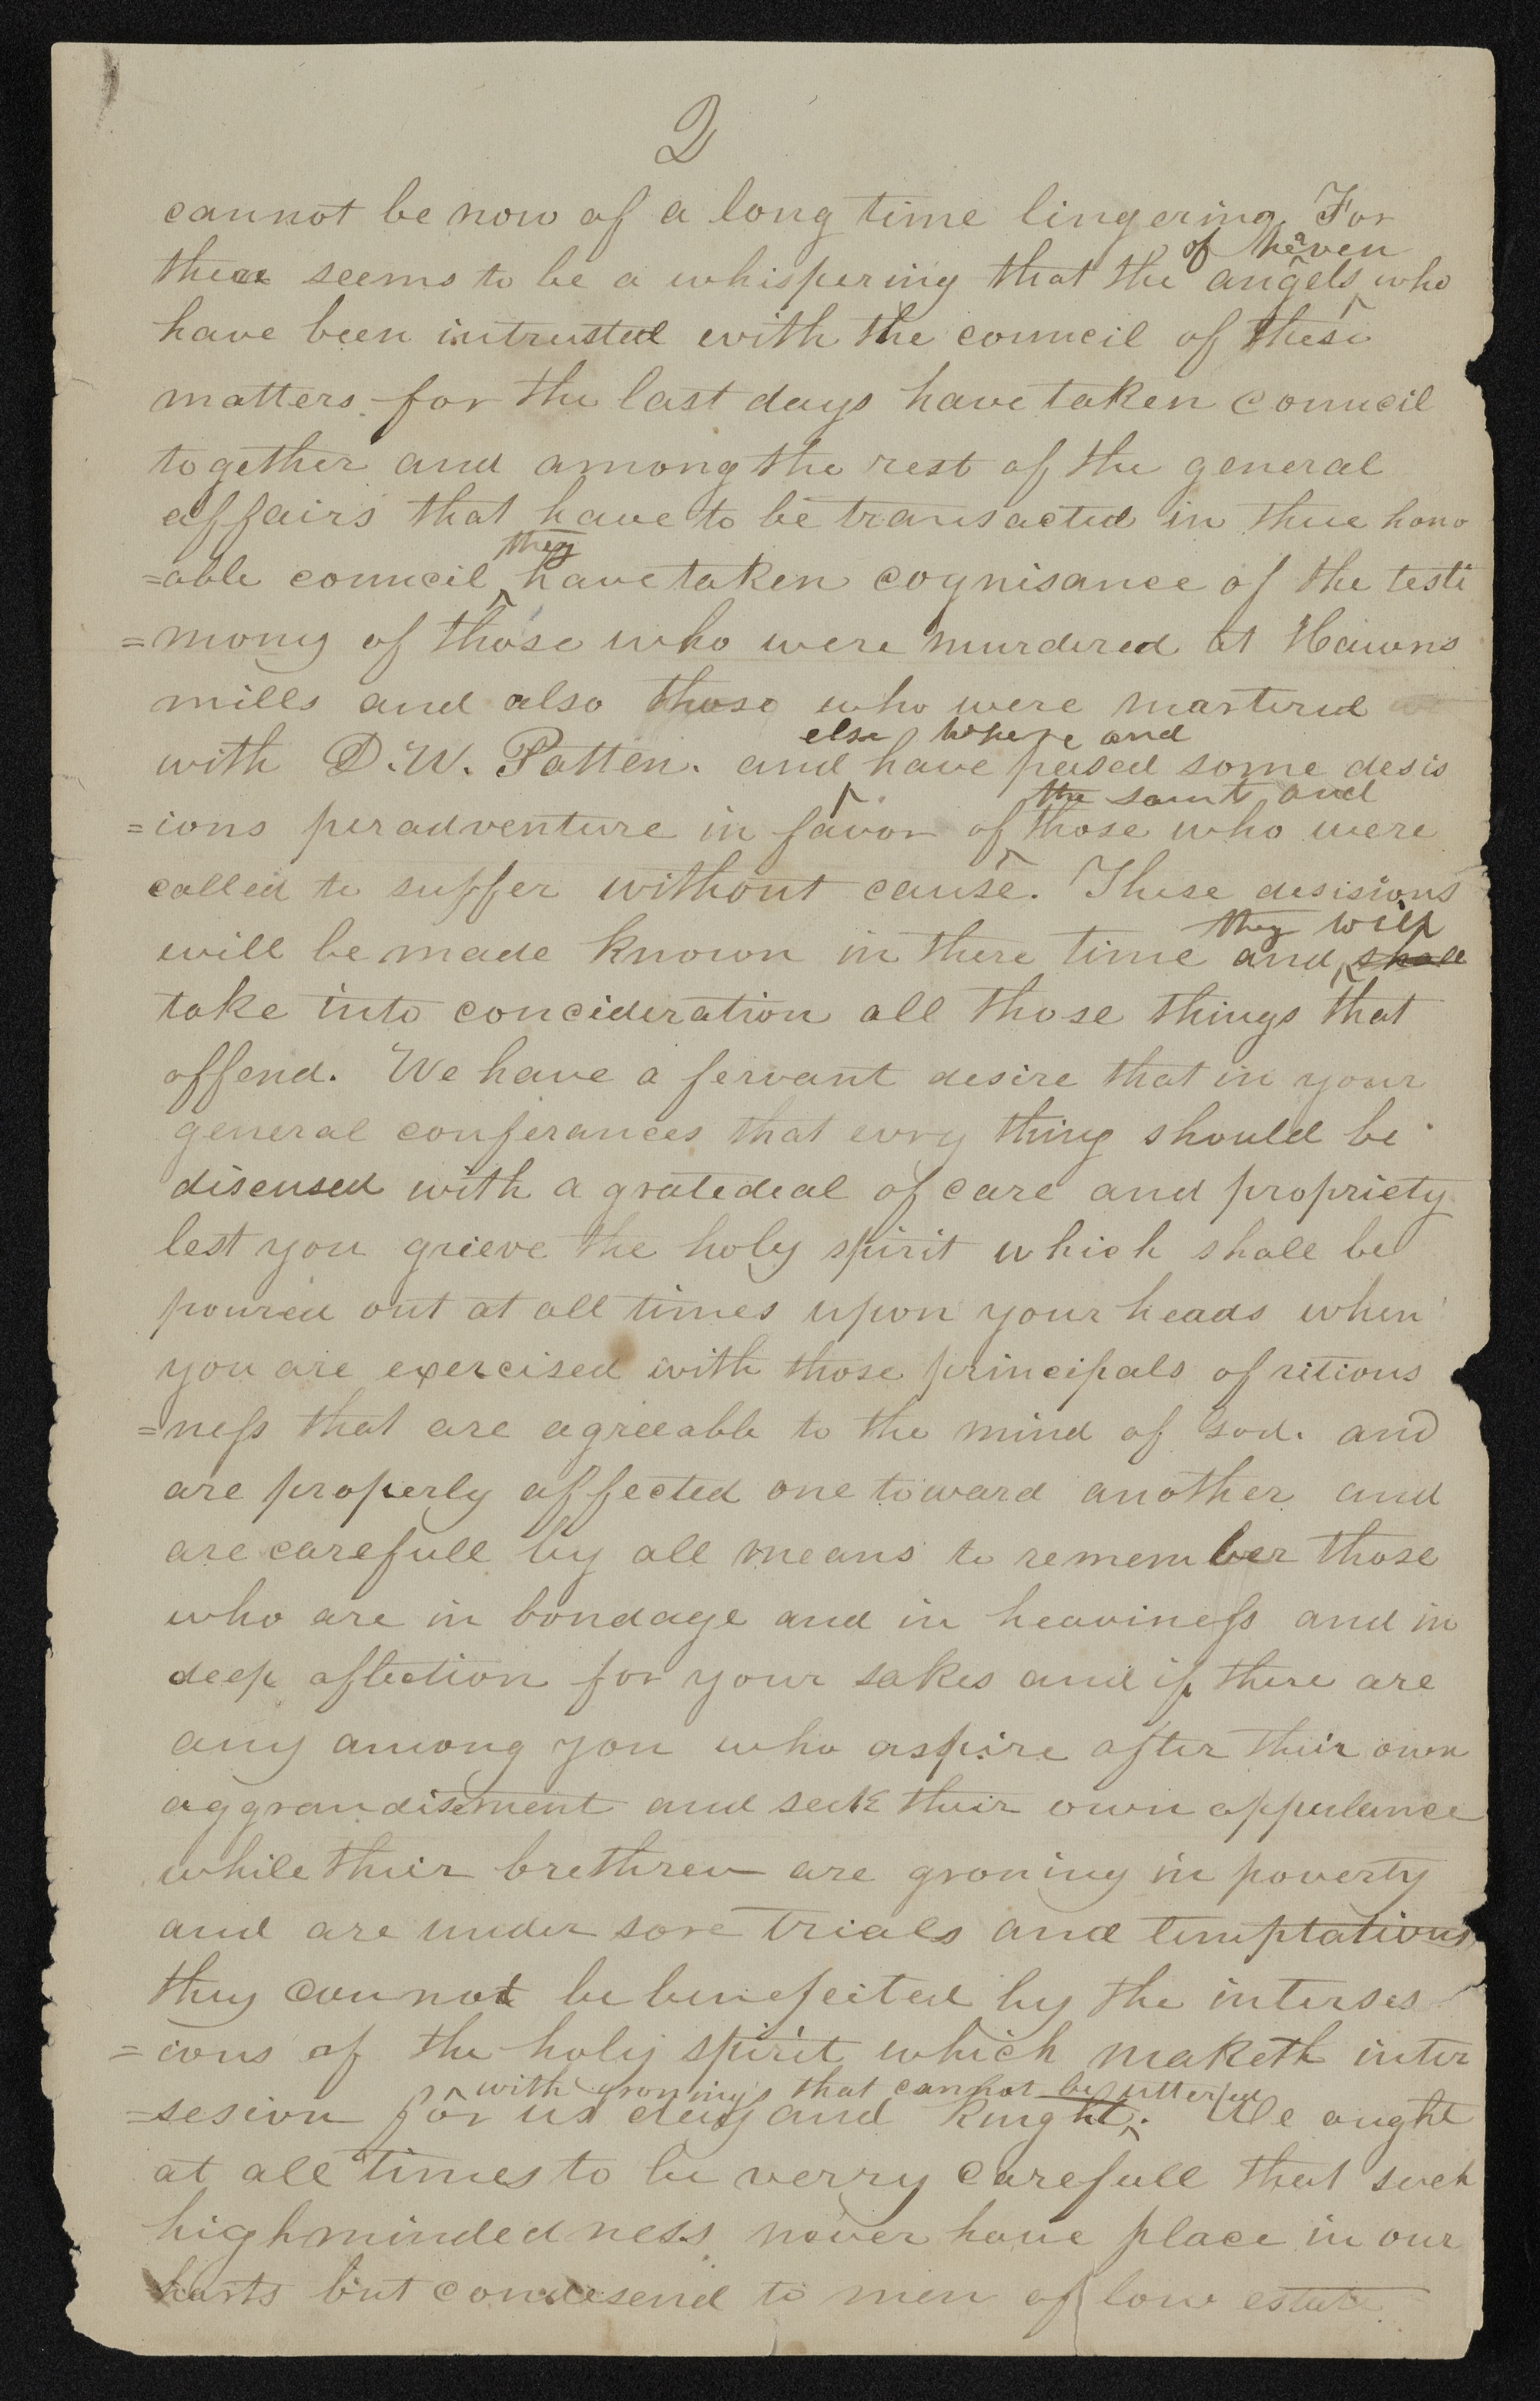 2
cannot be now of a long time lingering. For
there seems to be a whispering that the angels of heaven who
have been intrusted with the council of these
matters for the last days have taken council
together and among the rest of the general
affairs that have to be transacted in there hono
=able council they have taken cognisance of the testi
=mony of those who were murdered at Hawns
mills and also those who were martered
with D. W. Patten. and else where and have passed some desis
=ions peradventure in favor of the saint and those who were
called to suffer without cause. These desisions
will be made known in there time and they will shall
take into concideration all those things that
offend. We have a fervant desire that in your
general conferances that evry thing should be
discused with a grate deal of care and propriety
lest you grieve the holy spirit which shall be
poured out at all times upon your heads when
you are exercised with those principals of ritious
=ness that are agreeable to the mind of God. and
are properly affected one toward another and
are carefull by all means to remember those
who are in bondage and in heaviness and in
deep aflection for your sakes and if there are
any among you who aspire after their own
aggrandisement and seek their own oppulance
while their brethren are groning in poverty
and are under sore trials and temptations
they cannot be benefeited by the interses
=ions of the holy spirit which maketh inter
=sesion for us day and knight with gronings that cannot be uttered. We ought
at all times to be verry carefull that such
highmindedness never have place in our
harts but condesend to men of low estate